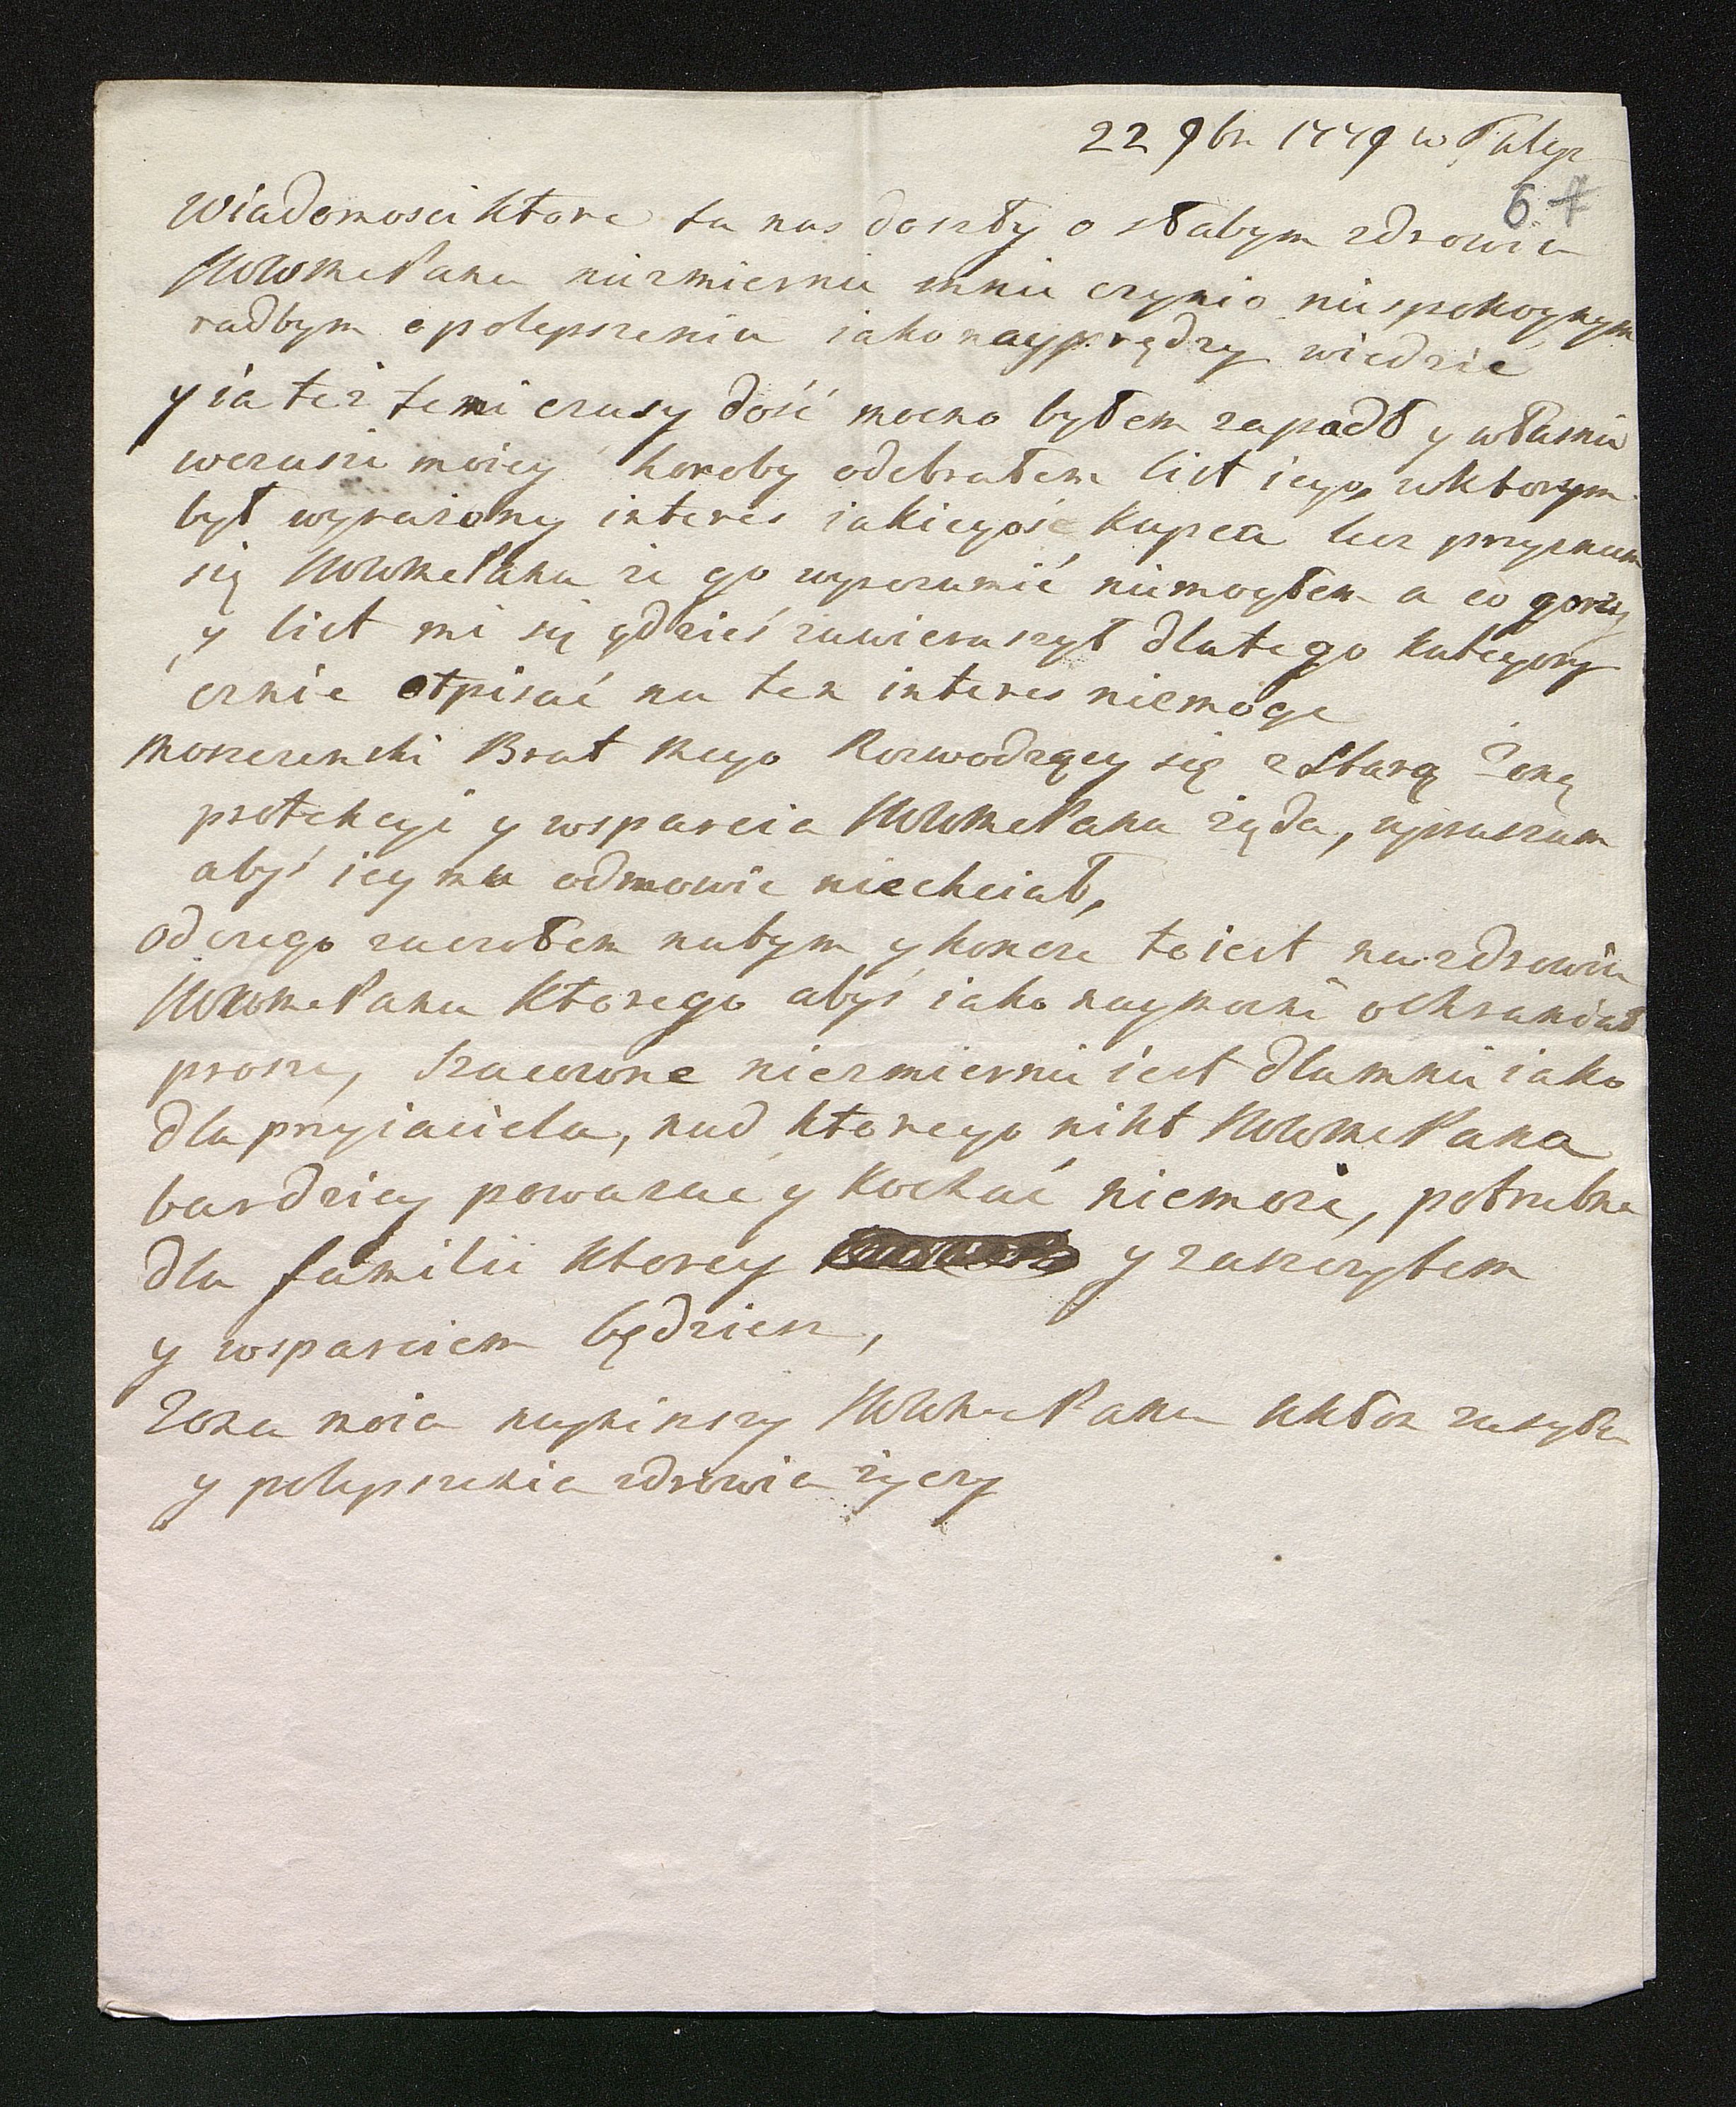 22 9br 1779 w
6 7
Wiadomosci ktore tu nas doszły o słabym zdrowiu
WWMePana niezmiernie mnie czynio niespokoynym
radbym o polepszeniu iako nayprędzy wiedzić
y ia też temi czasy dość mocno byłem zapadł y własnie
wczasie moiey horoby odebrałem list iego, wktorym
był wyrażony interes iakiegoś kupca lecz przyznam
się WWMePanu że go wyrozumić niemogłem a co gorzy
y list mi się gdzieś zawieruszył dlatego kategory
cznie otpisać na ten interes niemogę
Moszczenski Brat Mego Rozwodzący się z Starą Żoną
protekcyi y wsparcia WWMePana żąda, upraszam
abyś iey mu odmowic niechciał,
od czego zaczołem natym y koncze to iest na zdrowiu
WWMePana ktorego abyś iako naymocni ochraniał
prosze, szacowne niezmiernie iest dlamnie iako
dla przyiaciela, nad ktorego nikt WWMePana
bardziey powazać y kochać niemoże, potrzebne
dla familii ktorey y zaszczytem
y wsparciem będziesz,
Żona moia nayniższy WWMePanu ukłon zasyła
y polepszenia zdrowia życzy